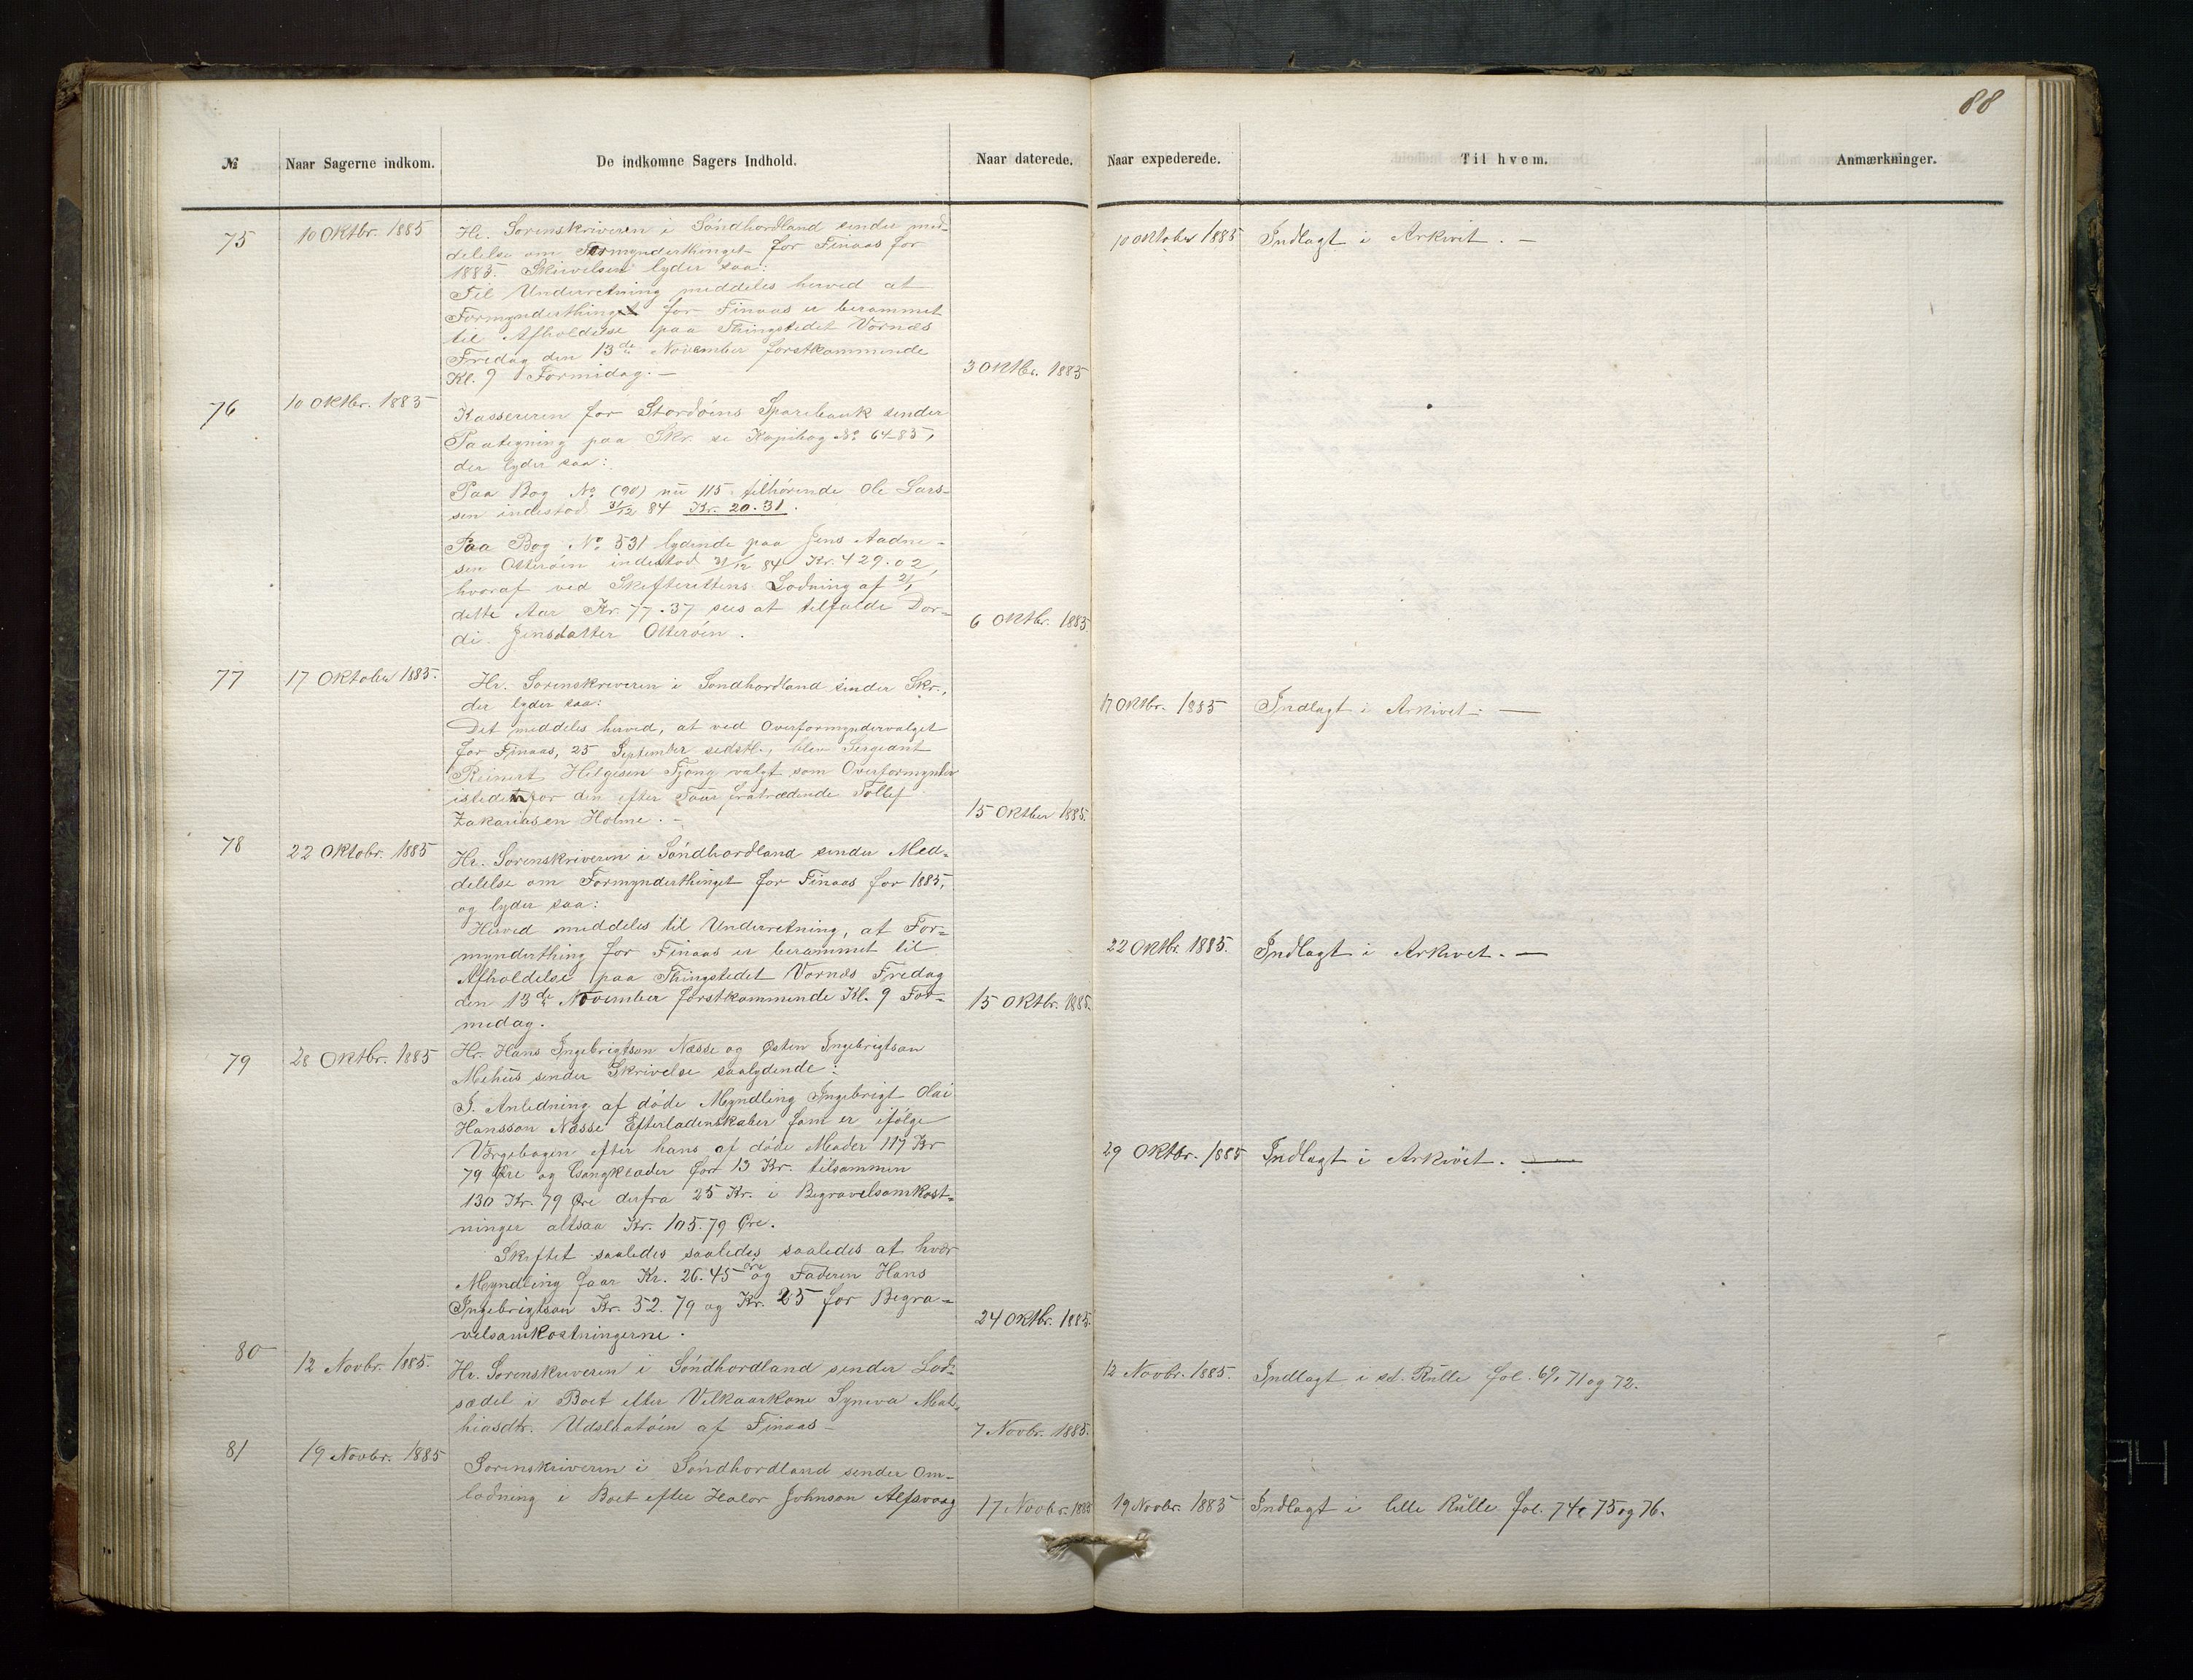 88
№ Naar Sagerne indkom. De indkomne Sagers Indhold. Naar daterede. Naar expederede. Til hvem. Anmærkninger.
75 10 Oktbr. 1885 Hr. Sorenskriveren i Söndhordland sender med-
delelse om Formynderthinget for Finaas for
1885. Skrivelsen lyder saa:
Til Underretning meddeles herved at
Formynderthinget for Finaas er berammet
til Afholdelse paa Thingstedet Vornæs
Fredag den 13de November forstkommende
Kl. 9 Formidag. —
3 Oktbr. 1885
10 Oktober 1885 Indlagt i Arkivet. —
76 10 Oktbr. 1885 Kassereren for Stordöens Sparebank sender
Paategning paa Skr. se Kopibog No 64-85,
der lyder saa:
Paa Bog No (90) nu 115 tilhörende Ole Lars-
sen indestod 31/12 84 Kr. 20.31.
Paa Bog No 531 lydende paa Jens Aadne-
sen Otteröen indestod 31/12 84 Kr. 429.02,
hvoraf ved Skifterettens Lodning af
dette Aar Kr. 77.37 sees at tilfalde Dor-
di Jensdatter Otteröen.
6 Oktbr. 1885.
77 17 Oktober 1885. Hr. Sorenskriveren i Söndhordland sender Skr.,
der lyder saa:
Det meddeles herved, at ved Overformyndervalget
for Finaas, 25 September sidstl., blev Sergeant
Reinert Helgesen Tjong valgt som Overformynder
istedenfor den efter Tour fratrædende Tollef
Zakariasen Holme. —
15 Oktber 1885.
17 Oktbr. 1885 Indlagt i Arkivet. —
78 22 Oktobr. 1885 Hr. Sorenskriveren i Söndhordland sender Med-
delelse om Formynderthinget for Finaas for 1885,
og lyder saa:
Herved meddeles til Underretning, at For-
mynderthing for Finaas er berammet til
Afholdelse paa Thingstedet Vornæs Fredag
den 13de November forstkommende Kl. 9 For-
medag.
15 Oktbr. 1885.
22 Oktbr. 1885. Indlagt i Arkivet. —
79 28 Oktbr. 1885 Hr. Hans Ingebrigtson Næsse og Østen Ingebrigtson
Mehus sender Skrivelse saalydende:
I Anledning af döde Myndling Ingebrigt Olai
Hansson Næsse Efterladenskaber som er ifölge
Værgebogen efter hans af döde Moder 117 Kr
79 Øre og Gangklæder for 13 Kr. tilsammen
130 Kr. 79 Øre derfra 25 Kr. i Begravelsomkost-
ninger altsaa Kr. 105.79 Øre.
Skiftet saaledes saaledes saaledes at hver
Myndling faar Kr. 26.45 Øre og Faderen Hans
Ingebrigtson Kr. 52.79 og Kr. 25 for Begra-
velsomkostningerne.
24 Oktbr. 1885.
29 Oktbr. 1885 Indlagt i Arkivet. —
80 12 Novbr. 1885. Hr. Sorenskriveren i Söndhordland sender Lod-
sædel i Boet efter Velkaarkone Syneva Mat-
hiasdtr. Udslætöen af Finaas —
7 Novbr. 1885.
12 Novbr. 1885. Indlagt i sd. Rulle fol. 69, 71 og 72.
81 19 Novbr. 1885 Sorenskriveren i Söndhordland sender Om-
lodning i Boet efter Halvor Johnson Alfsvaag
17 Novbr. 1885
19 Novbr. 1885 Indlagt i lille Rulle fol. 74, 75 og 76.